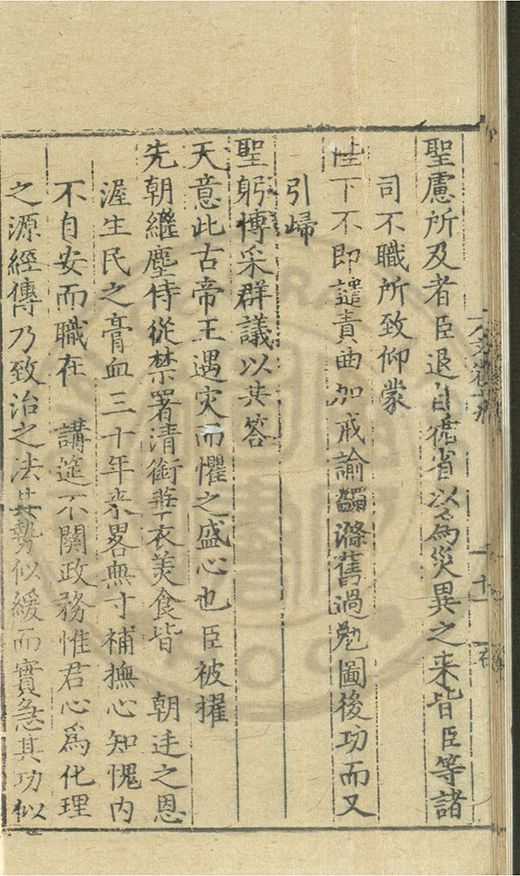 聖慮所及者臣退自循省以為災異之来皆臣等諸
司不職所致仰蒙
陛下不即譴責曲加戒諭蠲滌舊過勉圖後功而又
引歸
聖躬博采群議以共答
天意此古帝王遇灾而懼之盛心也臣被擢
先朝繼塵侍從禁署清銜華衣美食皆 朝廷之恩
渥生民之膏血三十年来畧無寸補撫心知愧内
不自安而職在 講筵不關政務惟君心為化理
之源經傳乃致治之法其勢似緩而實急其功似